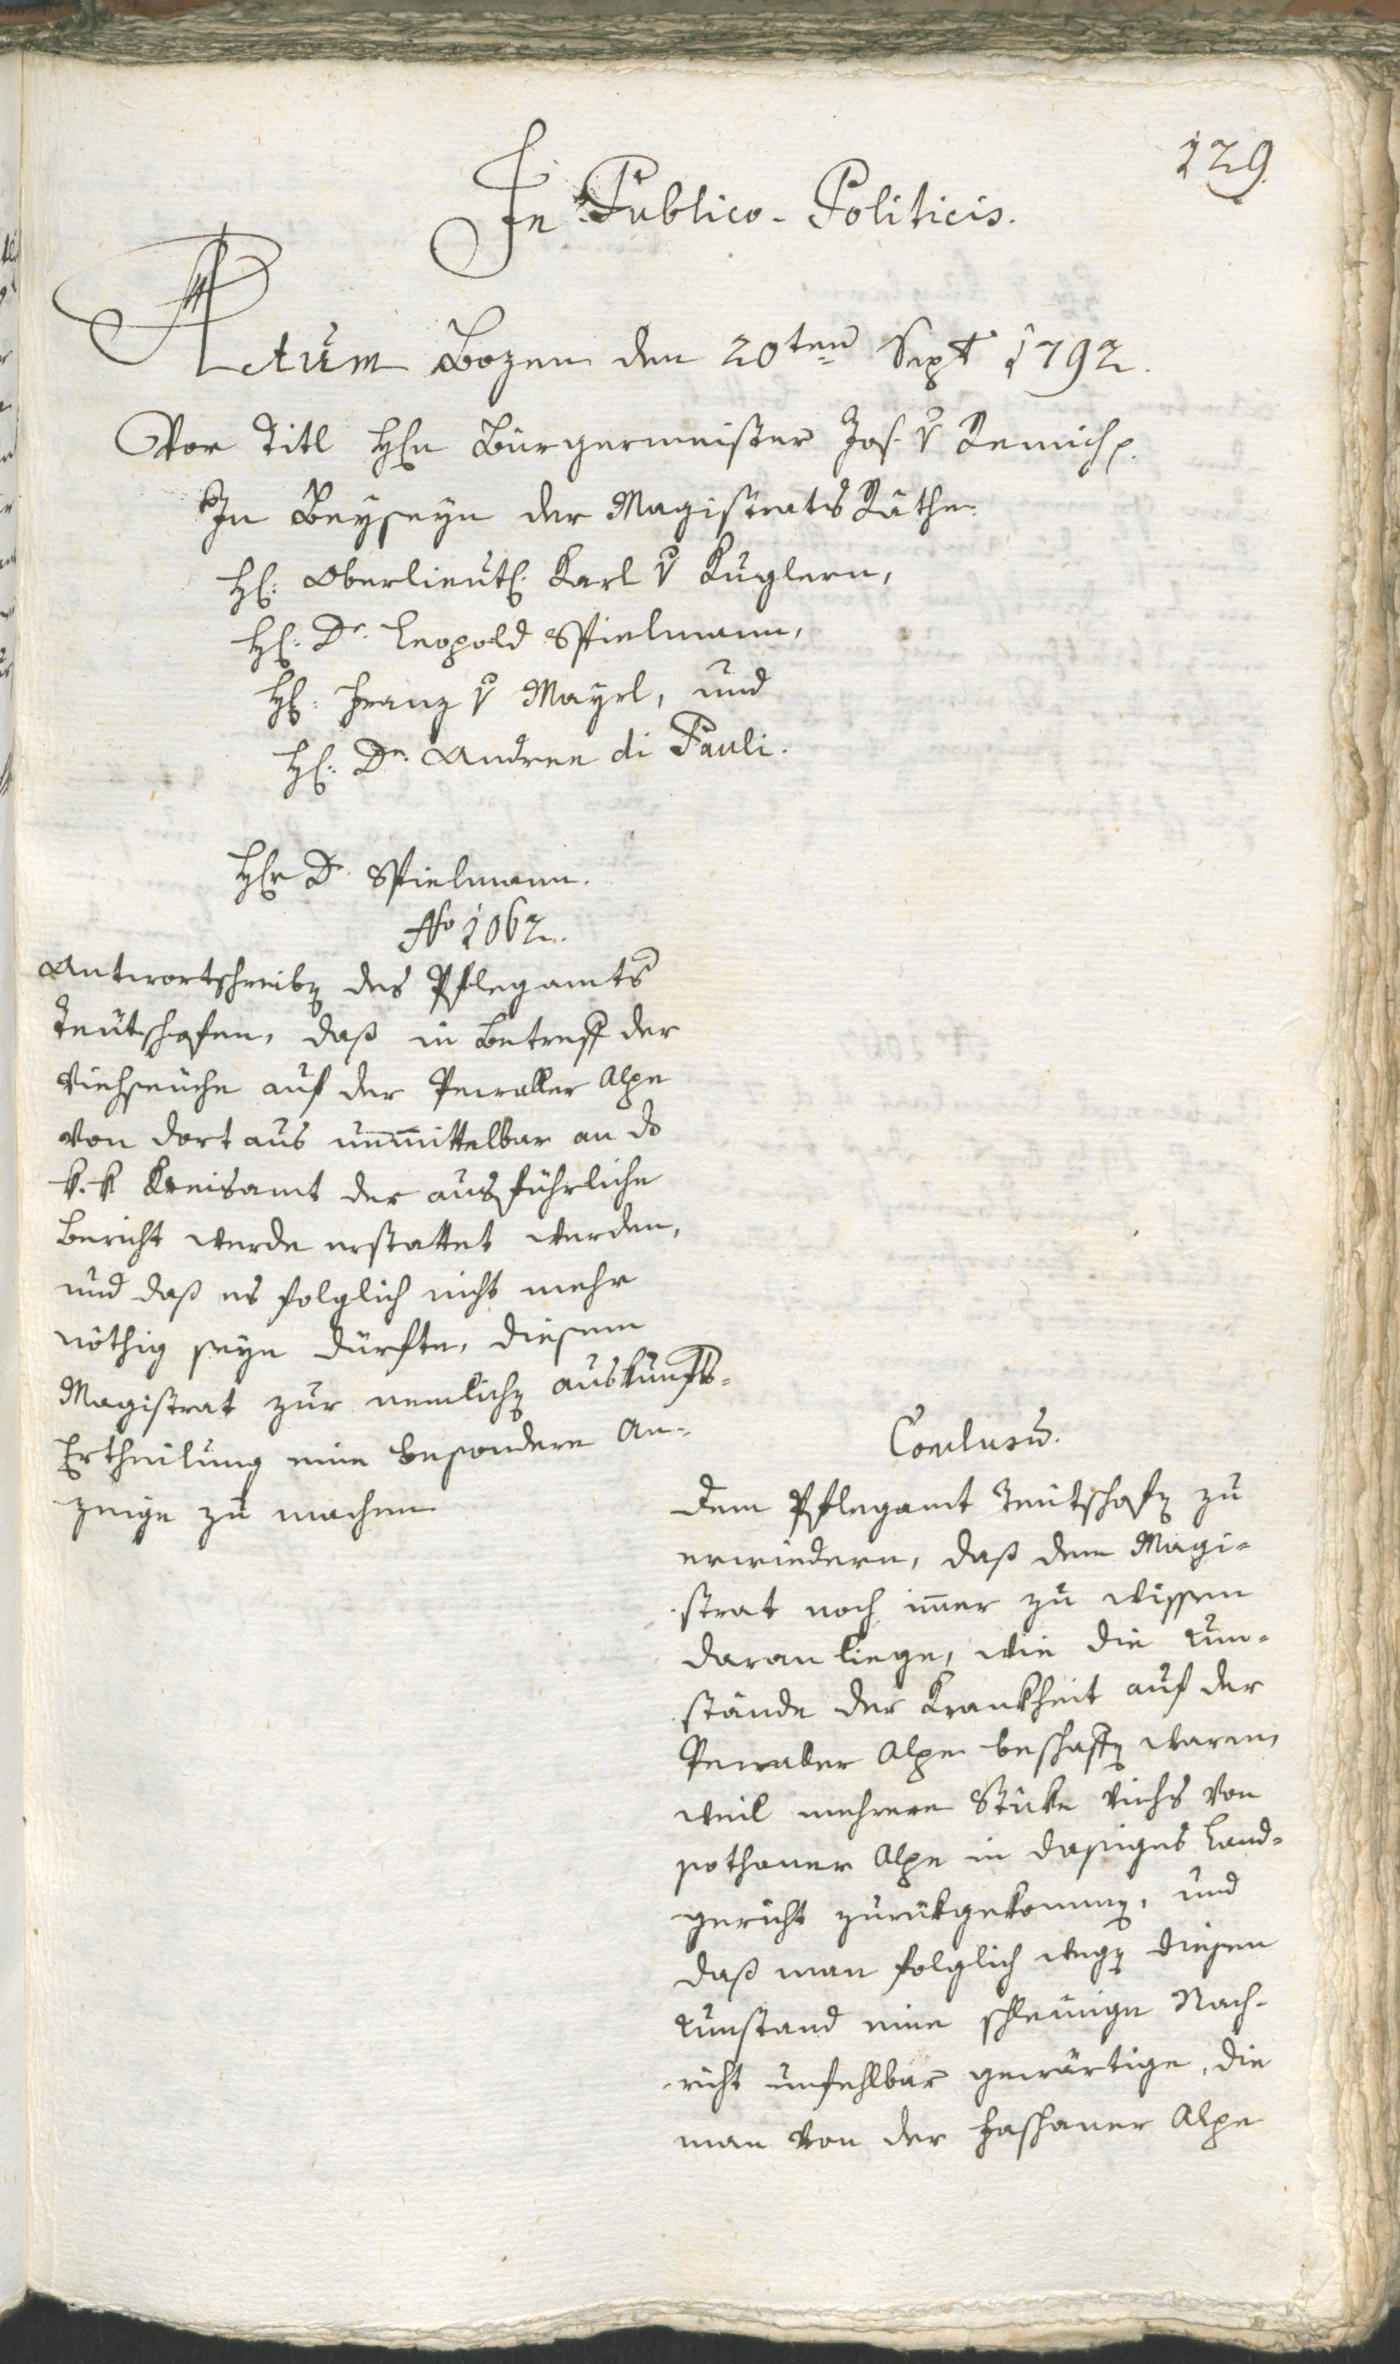 129.
In Publico-Politicis.
Actum Bozen den 20ten Sept 1792.
Vor Titl Hhn Bürgermeister Jos. v Remich p.
In Beyseyn der Magistrats Räthe.
Hh: Oberlieutl. Karl v Kuglern,
Hh: Dr. Leopold Spielmann,
Hh: Franz v Mayrl, und
Hh: Dr. Andree di Pauli.
Hhr Dr Spielmann.
No 1062.
Antwortschreiben des Pflegamts
Teutschofen, daß in Betreff der
Viehseuche auf der Alpe
von dort aus unmittelbar an das
k. k Kreisamt der ausführliche
Bericht werde erstattet werden,
und daß es folglich nicht mehr
nöthig seyn dürfte, diesem
Magistrat zur nemlichen Auskunfts-
Ertheilung eine besondere An-
zeige zu machen
Conclusum.
Dem Pflegamt Teutschofen zu
erwiedern, daß dem Magi-
strat noch immer zu wissen
daran liege, wie die Um-
stände der Krankheit auf der
Alpe beschaffen waren,
weil mehrere Stüke Viehs von
sothaner Alpe in dasiges Land-
gericht zurükgekommen, und
daß man folglich wegen diesen
Umstand eine schleunige Nach-
richt unfehlbar gewärtige, die
man von der Alpe